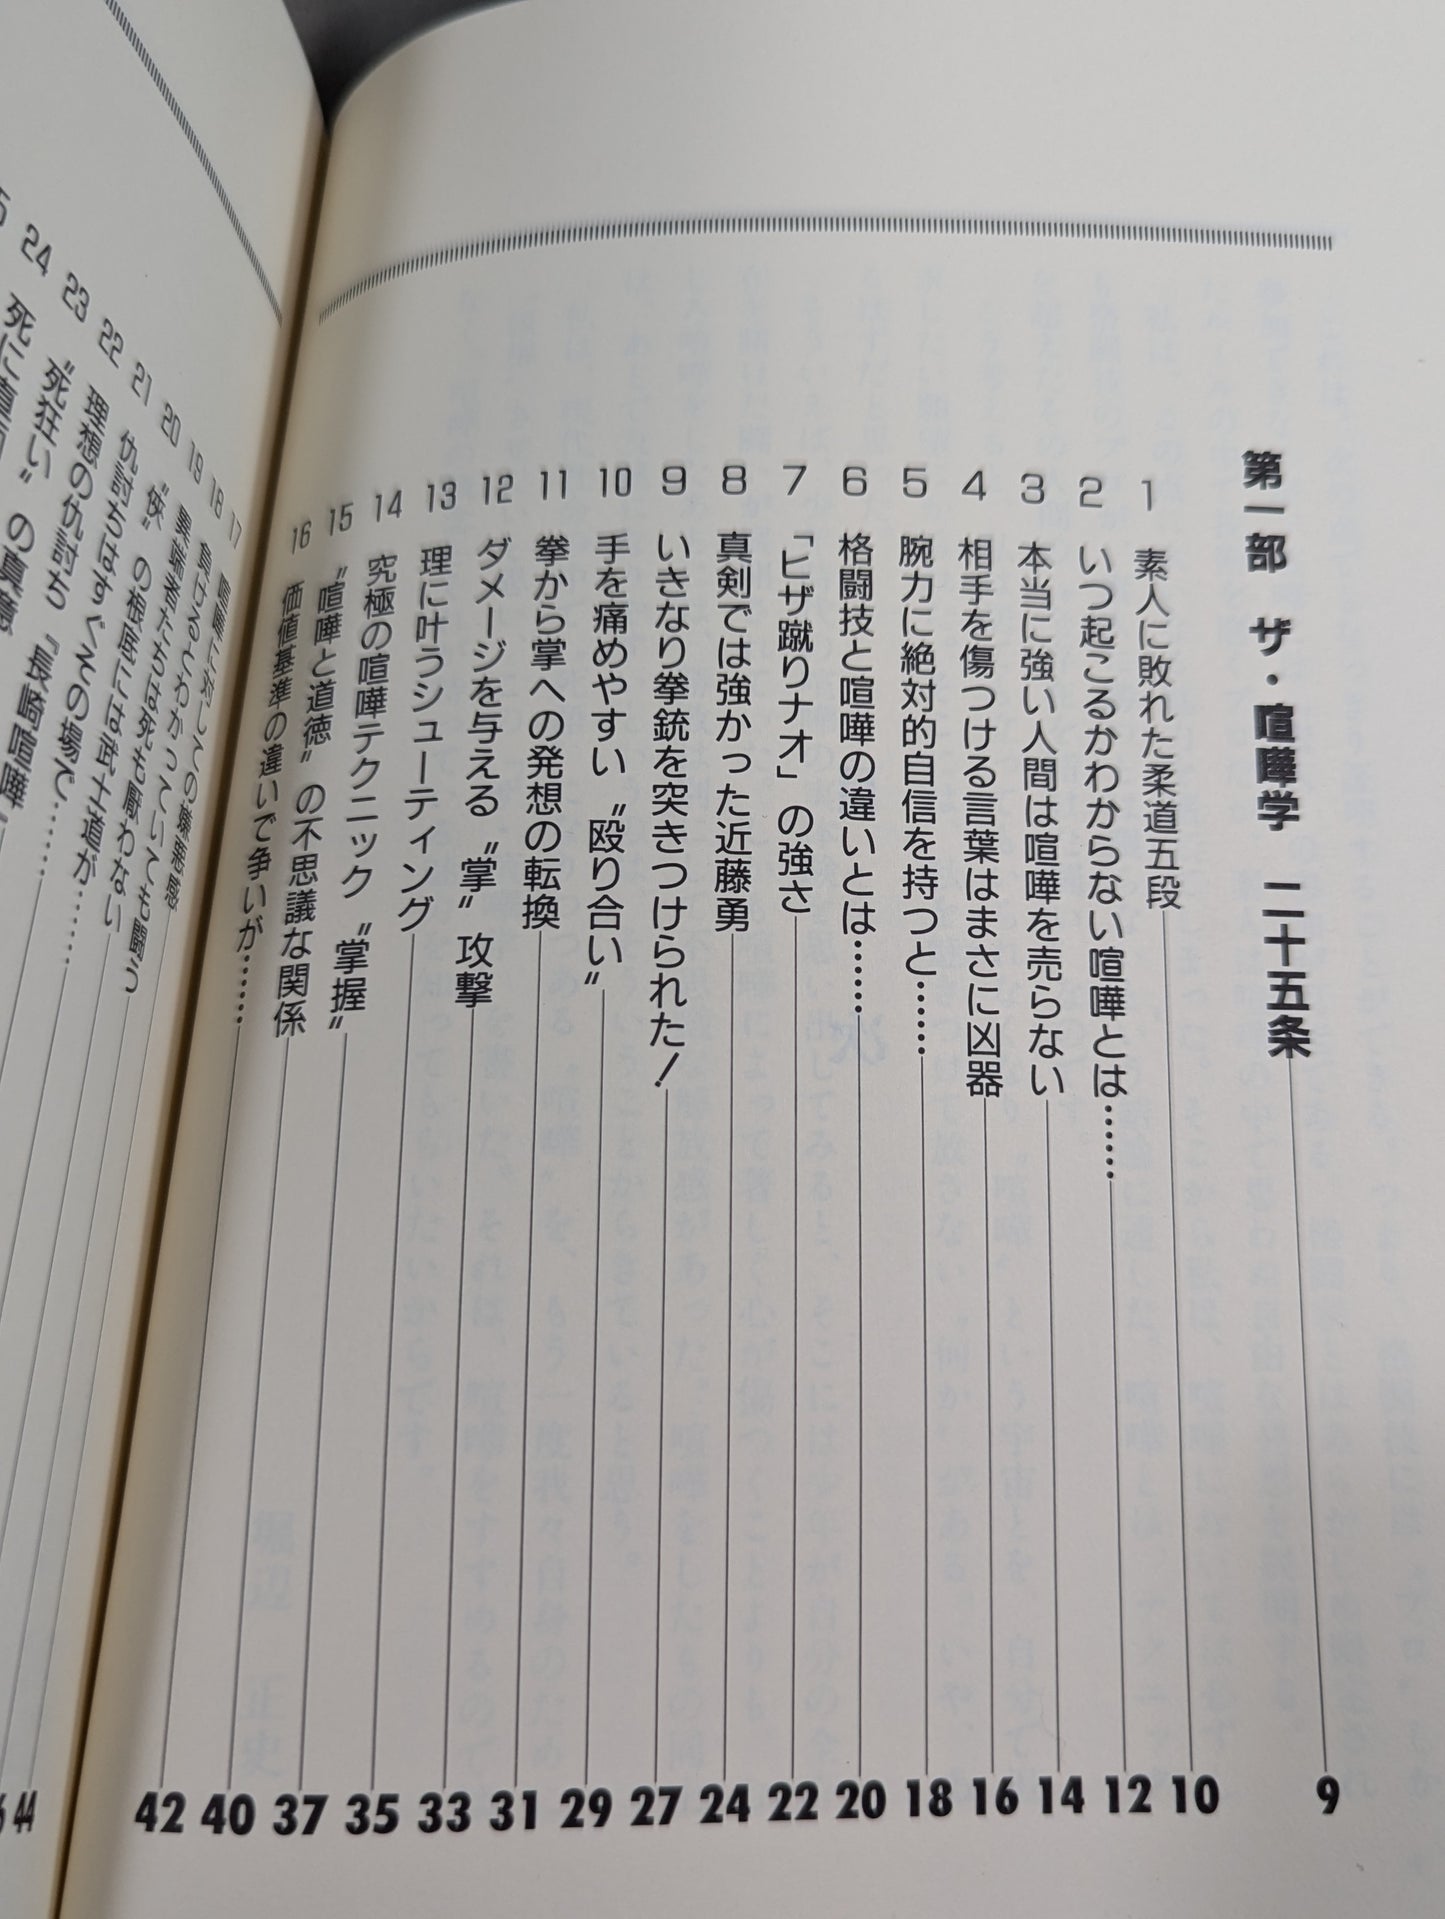 第一部 ザ・喧嘩学 二十五条 9
1 素人に敗れた柔道五段 10
2 いつ起こるかわからない喧嘩とは…… 12
3 本当に強い人間は喧嘩を売らない 14
4 相手を傷つける言葉はまさに凶器 16
5 腕力に絶対的自信を持つと…… 18
6 格闘技と喧嘩の違いとは…… 20
7 「ヒザ蹴りナオ」の強さ 22
8 真剣では強かった近藤勇 24
9 いきなり拳銃を突きつけられた! 27
10 手を痛めやすい〝殴り合い〟 29
11 拳から掌への発想の転換 31
12 ダメージを与える〝掌〟攻撃 33
13 理に叶うシューティング 35
14 究極の喧嘩テクニック〝掌握〟 37
15 〝喧嘩と道徳〟の不思議な関係 40
16 価値基準の違いで争いが…… 42
17 喧嘩に対しての嫌悪感 44
18 負けるとわかっていても闘う
19 異端者たちは死も厭わない
20 〝侠〟の根底には武士道が……
21 仇討ちはすぐその場で……
22 理想の仇討ち『長崎喧嘩
23 〝死狂い〟の真意
24 死に直面